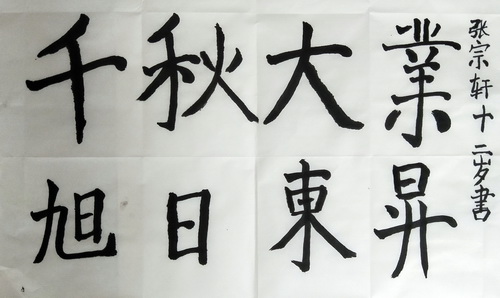 千秋大業
旭日東昇
张宗轩十二岁書